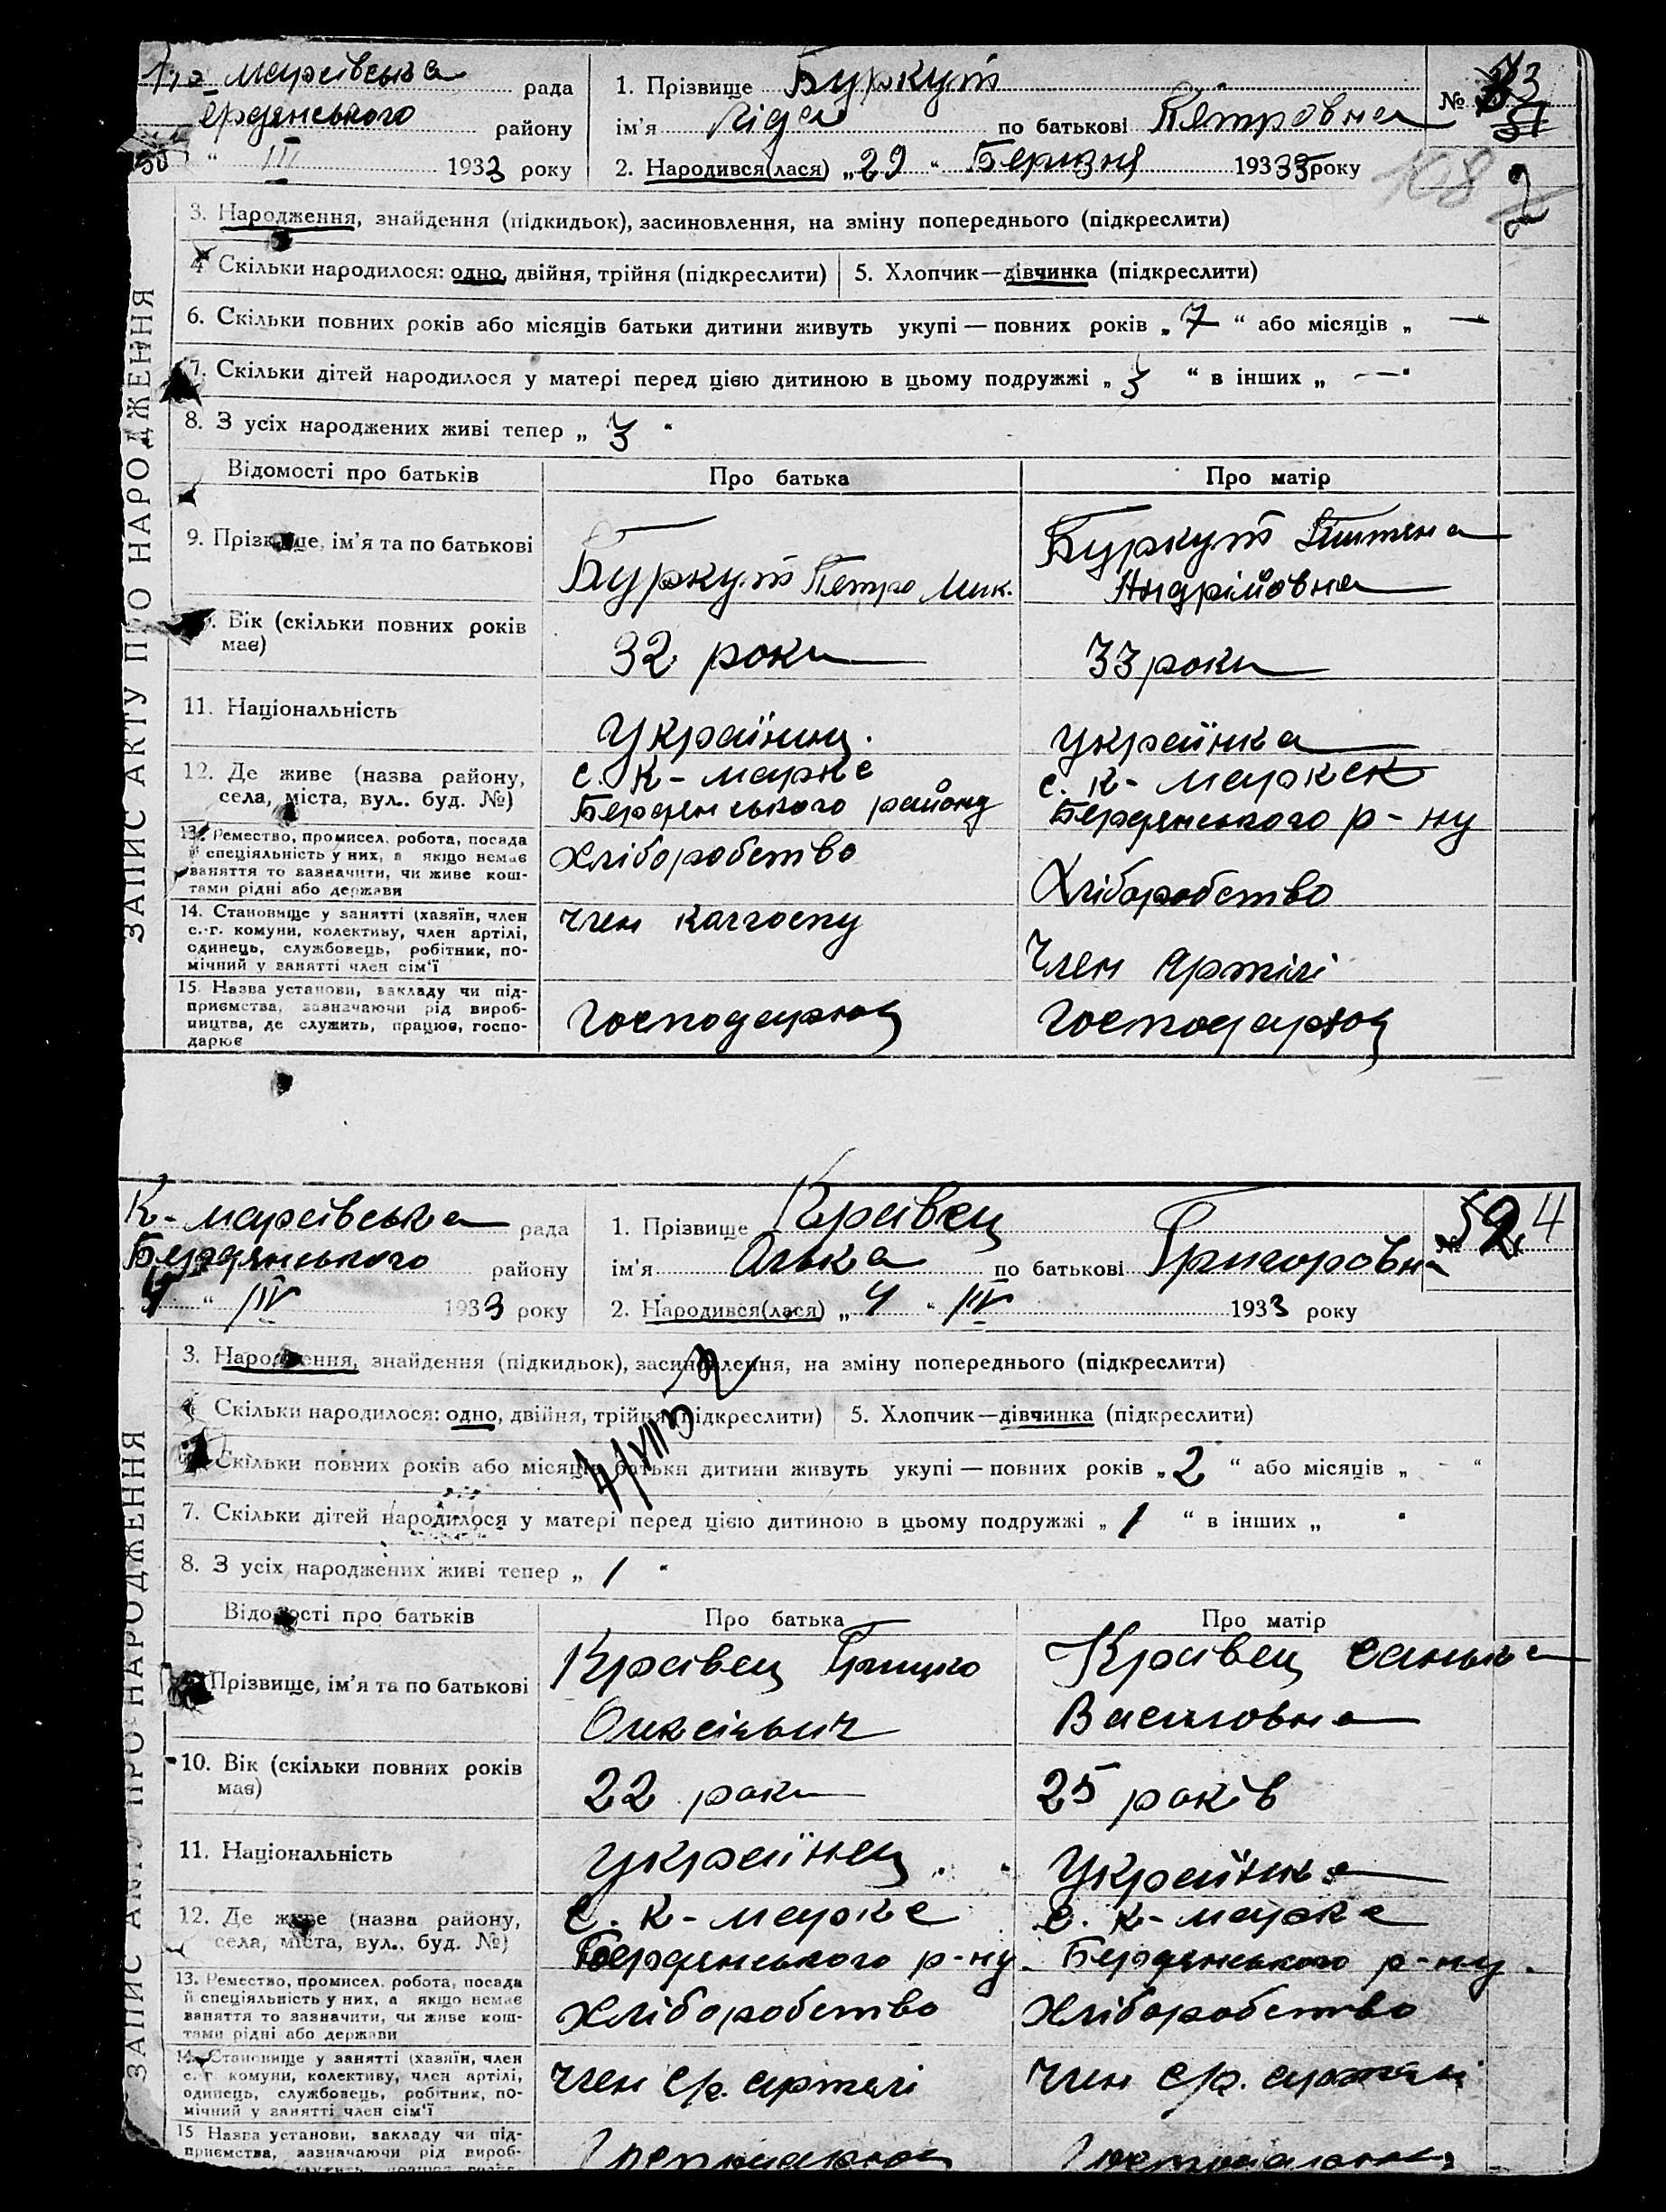 марківська рада
ердянського району
30 " III 1933 року
1. Прізвище Буркут
ім'я Ліда по батькові Пётровна
2. Народився(лася) „29" Березня 1933 року
№
108
ЗАПИС АКТУ ПРО НАРОДЖЕННЯ
3. Народження, знайдення (підкидьок), засиновлення, на зміну попереднього (підкреслити)
4. Скільки народилося: одно, двійня, трійня (підкреслити) 5. Хлопчик—дівчинка (підкреслити)
6. Скільки повних років або місяців батьки дитини живуть укупі — повних років „7" або місяців „ — "
7. Скільки дітей народилося у матері перед цією дитиною в цьому подружжі „3" в інших „ — "
8. З усіх народжених живі тепер „3"
Відомості про батьків Про батька Про матір
9. Прізвище, ім'я та по батькові
Буркут Петро Мик.
Буркут Титяна
Андрійовна
10. Вік (скільки повних років має)
32 роки
33 роки
11. Національність
Українец.
Українка
12. Де живе (назва району,
села, міста, вул.. буд. №)
с. К-марке
Бердянського району
с. К-маркек
Бердянського р-ну
13. Ремество, промисел, робота, посада
й спеціяльність у них, а якщо немає
заняття то зазначити, чи живе кош-
тами рідні або держави
Хліборобство
Хліборобство
14. Становище у занятті (хазяїн, член
с.-г. комуни, колективу, член артілі,
одинець, службовець, робітник, по-
мічний у занятті член сім'ї
член колгоспу
Член Артілі
15. Назва установи, закладу чи під-
приємства, зазначаючи рід вироб-
ництва, де служить, працює, госпо-
дарює
Господарюц
Господарюц
К-марківська рада
Бердянського району
4 " IV 1933 року
1. Прізвище Кравец
ім'я Олька по батькові Григоровна
2. Народився(лася) „4" IV 1933 року
№
ЗАПИС АКТУ ПРО НАРОДЖЕННЯ
3. Народження, знайдення (підкидьок), засиновлення, на зміну попереднього (підкреслити)
Скільки народилося: одно, двійня, трійня (підкреслити) 5. Хлопчик—дівчинка (підкреслити)
Скільки повних років або місяців батьки дитини живуть укупі — повних років „2" або місяців „ - "
7. Скільки дітей народилося у матері перед цією дитиною в цьому подружжі „1" в інших „ "
8. З усіх народжених живі тепер „1"
Відомості про батьків Про батька Про матір
Прізвище, ім'я та по батькові
Кравец Грицко
Олексієвич
Кравец Санька
Василовна
10. Вік (скільки повних років
має)
22 роки
25 років
11. Національність
Українец.
Українка
12. Де живе (назва району,
села, міста, вул., буд. №)
с. К-марке
Бердянського р-ну.
с. К-марка
Бердянського р-ну.
13. Ремество, промисел, робота, посада
й спеціяльність у них, а якщо немає
заняття то зазначити, чи живе кош-
тами рідні або держави
Хліборобство
Хліборобство
14. Становище у занятті (хазяїн, член
с.-г комуни, колективу, член артілі,
одинець, службовець, робітник, по-
мічний у занятті член сім'ї
член с/г. артілі
член с/г. артілі
15 Назва установи, закладу чи під-
приємства, зазначаючи рід вироб-